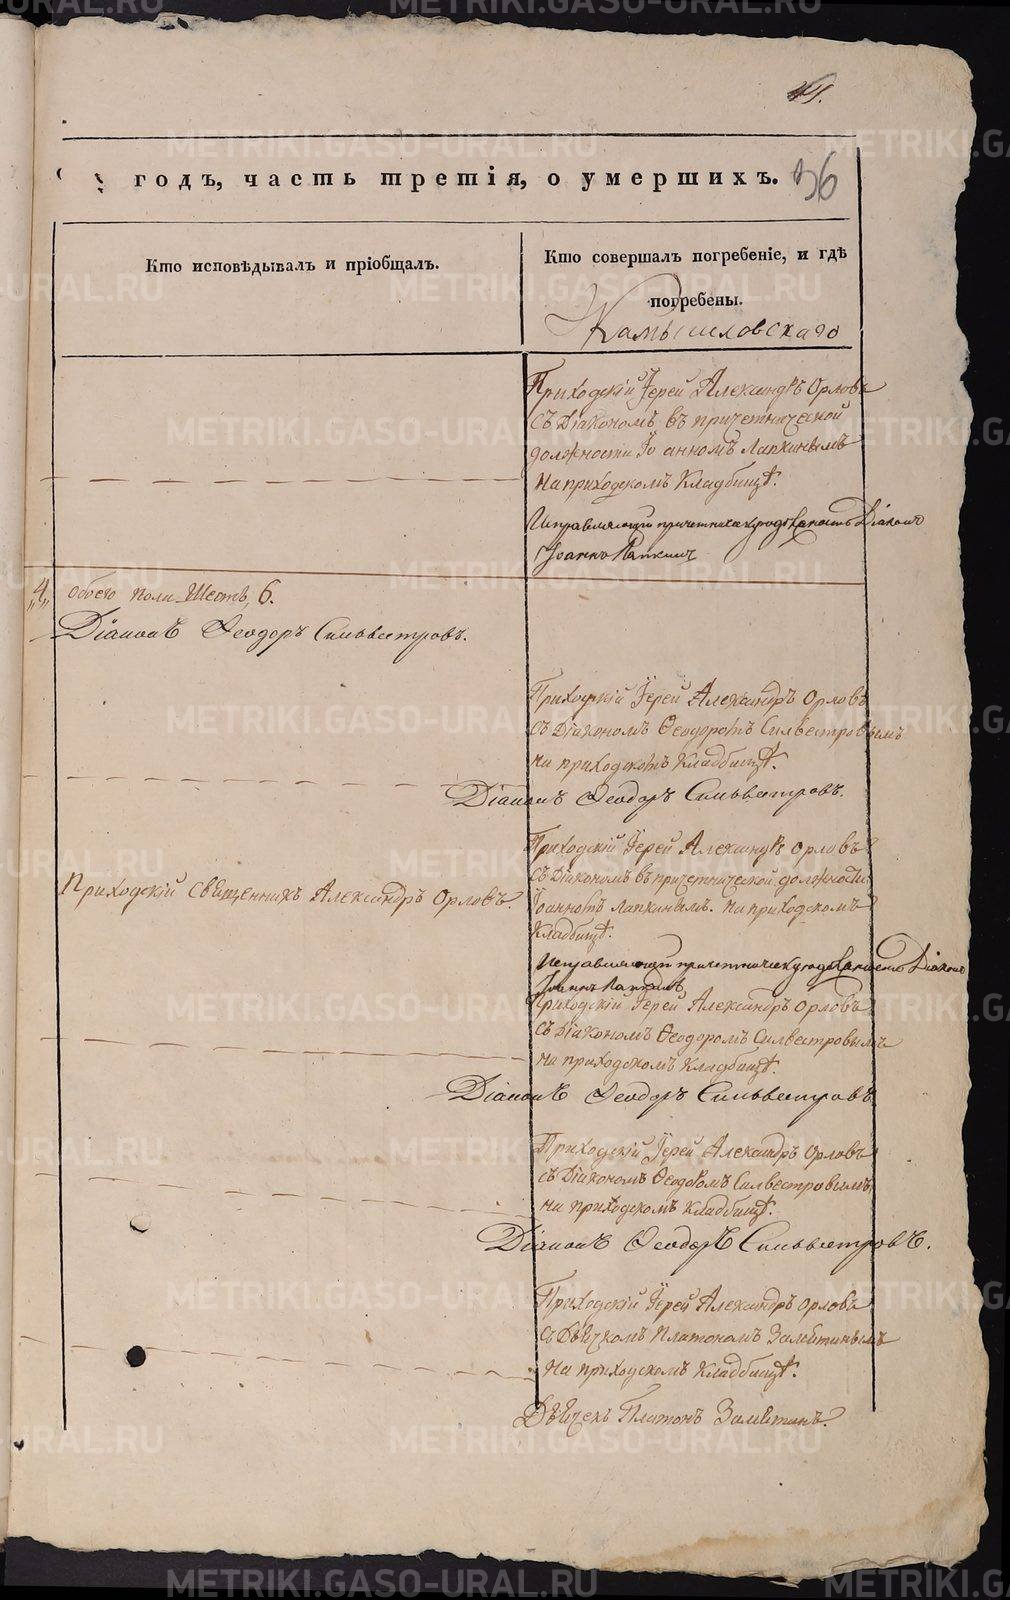 41.
годъ, часть третія, о умершихъ.
36
Кто исповѣдывалъ и пріобщалъ.
Кто совершалъ погребеніе, и гдѣ
погребены.
Камышловскаго
Приходскій Іерей Александръ Орловъ
съ Діакономъ въ причетнической
должности Іоанномъ Лапкинымъ
На приходскомъ Кладбищѣ.
Исправляющій причетническую должность Діаконъ
Іоаннъ Лапкинъ
4
обоего пола Шесть, 6.
Діаконъ Ѳеодоръ Сильвестровъ.
Приходскій Іерей Александръ Орловъ
съ Діакономъ Ѳеодоромъ Силвестровымъ
на приходскомъ Кладбищѣ.
Діаконъ Ѳеодоръ Сильвестровъ.
Приходскій Іерей Александръ Орловъ
съ Діакономъ въ причетнической должности
Іоанномъ Лапкинымъ. На приходскомъ
Кладбищѣ.
Приходскій Священникъ Александръ Орловъ.
Исправляющій причетническую должность Діаконъ
Іоаннъ Лапкинъ
Приходскій Іерей Александръ Орловъ
съ Діакономъ Ѳеодоромъ Силвестровымъ
на приходскомъ Кладбищѣ.
Діаконъ Ѳеодоръ Сильвестровъ.
Приходскій Іерей Александръ Орловъ
съ Діакономъ Ѳеодоромъ Силвестровымъ
на приходскомъ Кладбищѣ.
Діаконъ Ѳеодоръ Сильвестровъ.
Приходскій Іерей Александръ Орловъ
съ Дьячкомъ Платономъ Замѣтинымъ
На приходскомъ Кладбищѣ.
Дьячекъ Платонъ Замѣтинъ.
METRIKI.GASO-URAL.RU